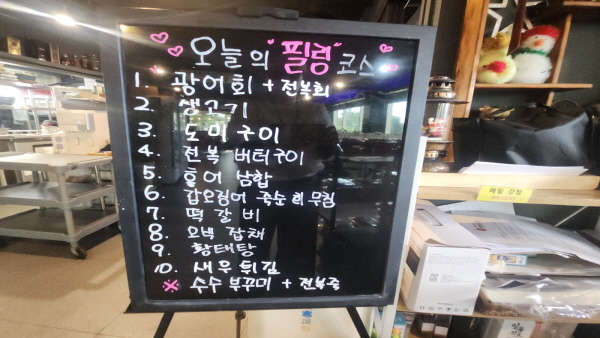 오늘의 "필링" 코스
1. 광어회 + 전복회
2. 생고기
3. 도미구이
4. 전복 버터구이
5. 홍어 삼합
6. 갑오징어 국순 회 무침
7. 떡갈비
8. 오색 잡채
9. 황태탕
10. 새우튀김
※ 수수 부꾸미 + 전복죽